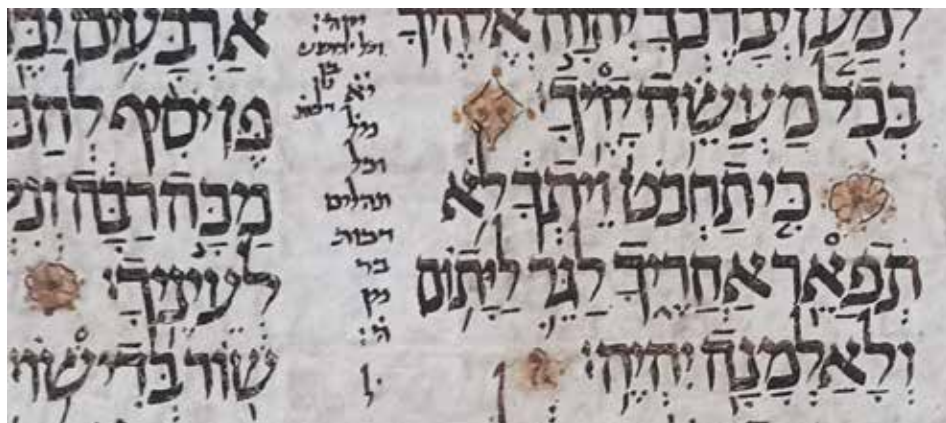 לְמַעַן יְבָרֶכְךָ יְהוָה אֱלֹהֶיךָ
בְּכֹל מַעֲשֵׂה יָדֶיךָ׃
כִּי תַחְבֹּט זֵיתְךָ לֹא
תְפַאֵר אַחֲרֶיךָ לַגֵּר לַיָּתוֹם
וְלָאַלְמָנָה יִהְיֶה׃
וכל
תהלים
בר
מן
אַרְבָּעִים יַכֶּ
פֶּן יֹסִיף לְהַכֹּ
מַכָּה רַבָּה וְנִקְ
לְעֵינֶיךָ׃
שׁוֹר בְּדִישׁוֹ